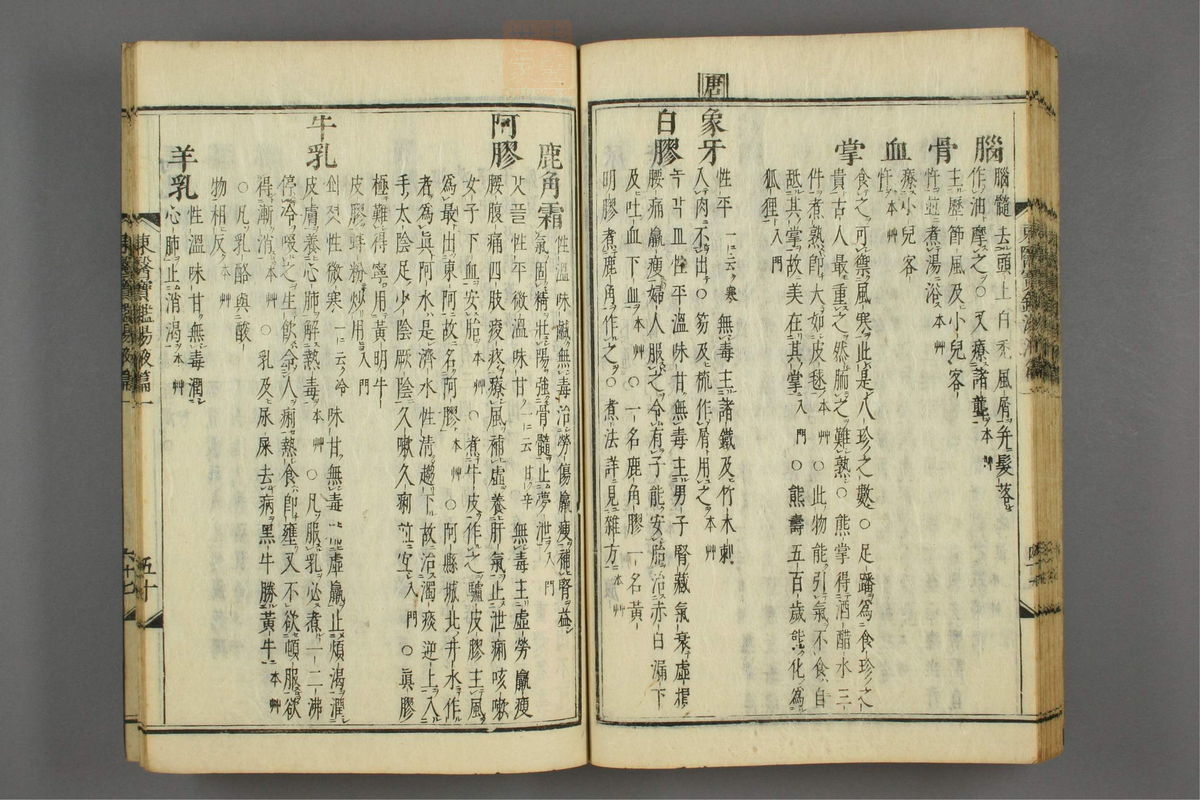 腦 腦髓去頭上白禿風屑弁髮落
作油摩之○又療諸聾 本艸
骨 主歷節風及小兒客
忤並煮湯浴 本艸
血 療小兒客
忤 本艸
掌 食之可禦風寒此是八珍之數○足蹯爲食珍之
貴古人最重之然胹之難熟○熊掌得酒醋水三
件煮熟卽大如皮毬 本艸 ○此物能引氣不食自
舐其掌故美在其掌 入門 ○熊壽五百歲能化爲
狐狸 入門
唐 象牙 性平 一云寒 無毒主諸鐵及竹木刺
入肉不出○笏及梳作屑用之 本艸
白膠 性平溫味甘無毒主男子腎藏氣衰虛損
腰痛羸瘦婦人服之令有子能安胎治赤白漏下
及吐血下血 本艸 ○一名鹿角膠一名黃
明膠煮鹿角作之○煮法詳見雜方 本艸
鹿角霜 性溫味鹹無毒治勞傷羸瘦補腎益
氣固精壯陽強骨髓止夢泄 入門
阿膠 갓플 性平微溫味甘 一云甘辛 無毒主虛勞羸瘦
腰腹痛四肢痠疼療風補虛養肝氣止泄痢咳嗽
女子下血安胎 本艸 ○煮牛皮作之驢皮膠主風
爲最出東阿故名阿膠 本艸 ○阿縣城北井水作
者爲眞阿水是濟水性淸趨下故治濁痰逆上入
手太陰足少陰厥陰久嗽久痢並宜 入門 ○眞膠
極難得寧用黃明牛
皮膠粉炒用 入門
牛乳 性微寒 一云冷 味甘無毒 虛羸止煩渴潤
皮膚養心肺解熱毒 本艸 ○凡服乳必煮一二沸
停冷啜之生飮令人痢熱食卽壅又不欲頓服欲
得漸消 本艸 ○乳及尿屎去病黑牛勝黃牛 本艸
○凡乳酪與酸
物相反 本艸
羊乳 性溫味甘無毒潤
心肺止消渴 本艸
東醫寶鑑湯液篇一
五十